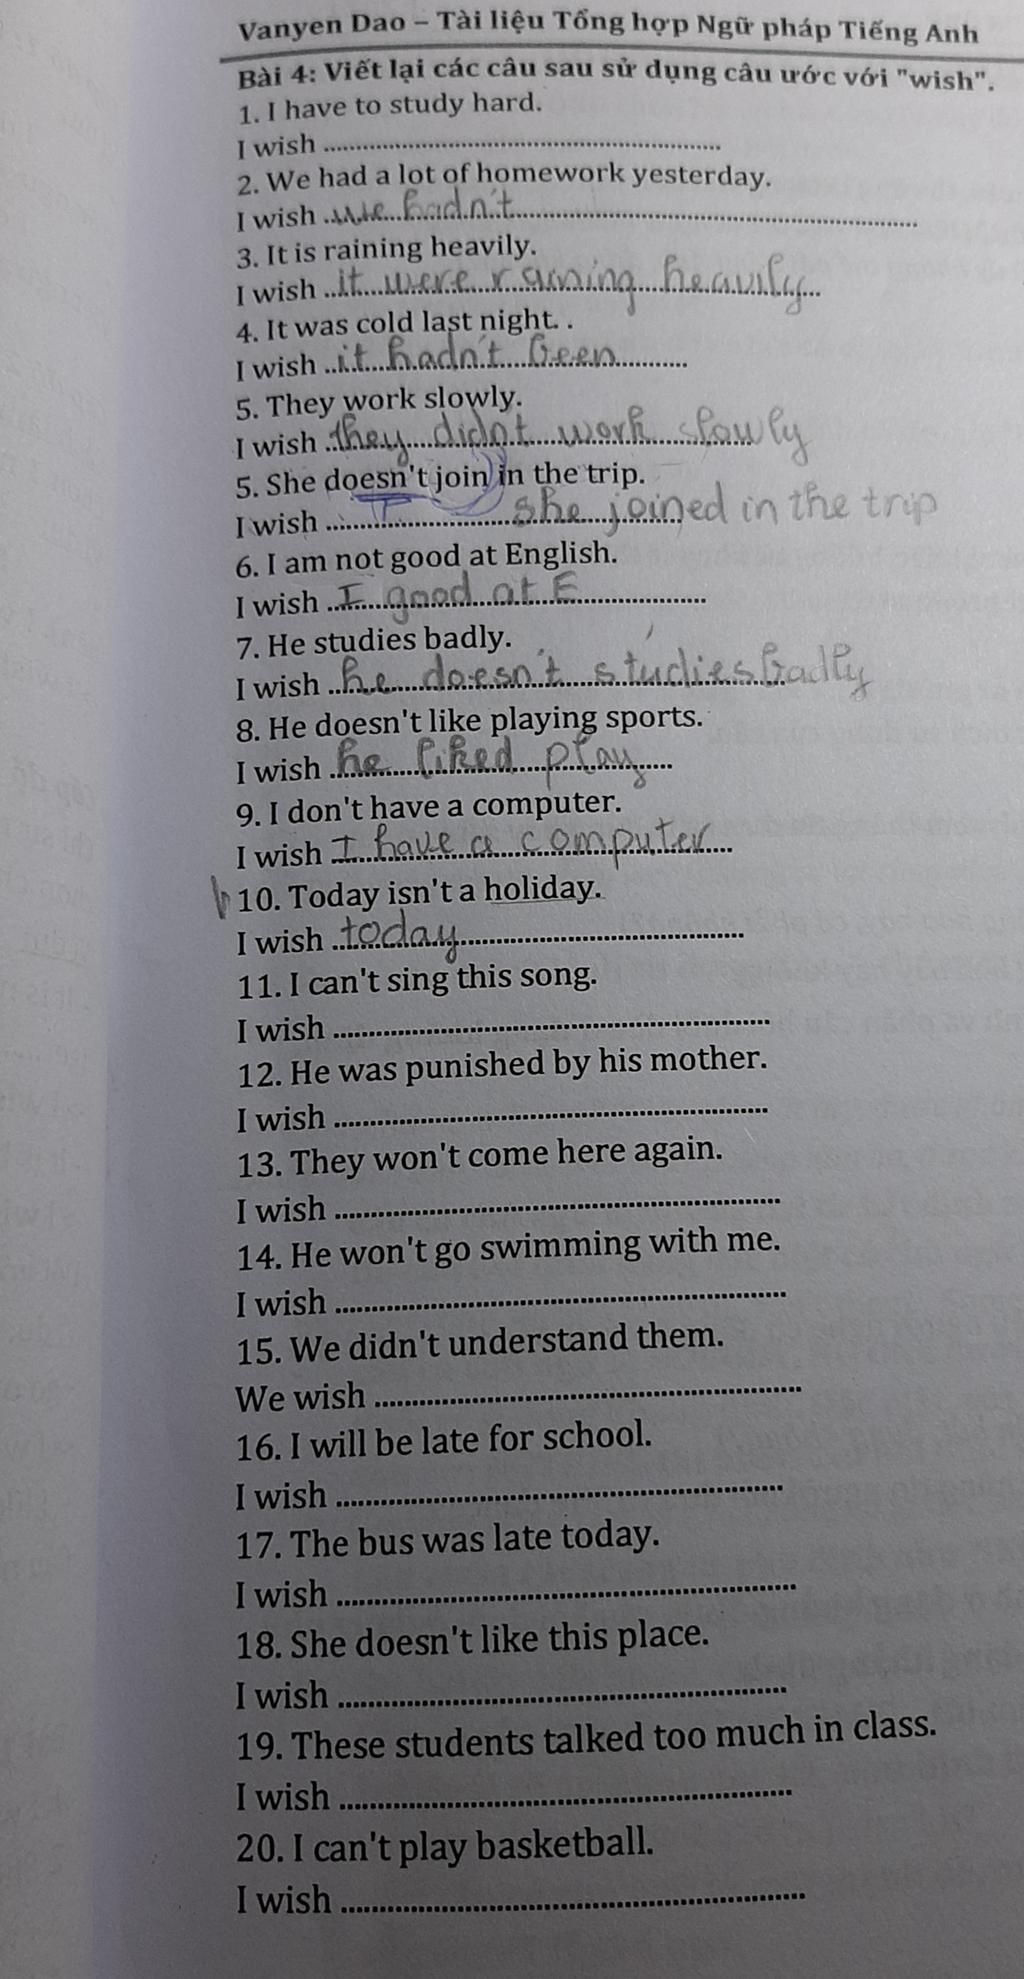 Vanyen Dao – Tài liệu Tổng hợp Ngữ pháp Tiếng Anh
Bài 4: Viết lại các câu sau sử dụng câu ước với "wish".
1. I have to study hard.
I wish ..........
2. We had a lot of homework yesterday.
I wish we hadn't
3. It is raining heavily.
I wish it were raining heavily
4. It was cold last night. .
I wish it hadn't been
5. They work slowly.
I wish they didn't work slowly
5. She doesn't join in the trip.
I wish she joined in the trip
6. I am not good at English.
I wish I good at E
7. He studies badly.
I wish he doesn't studies badly
8. He doesn't like playing sports.
I wish he liked play
9. I don't have a computer.
I wish I have a computer
10. Today isn't a holiday.
I wish today
11. I can't sing this song.
I wish ..........
12. He was punished by his mother.
I wish ..........
13. They won't come here again.
I wish ..........
14. He won't go swimming with me.
I wish ..........
15. We didn't understand them.
We wish ..........
16. I will be late for school.
I wish ..........
17. The bus was late today.
I wish ..........
18. She doesn't like this place.
I wish ..........
19. These students talked too much in class.
I wish ..........
20. I can't play basketball.
I wish ..........